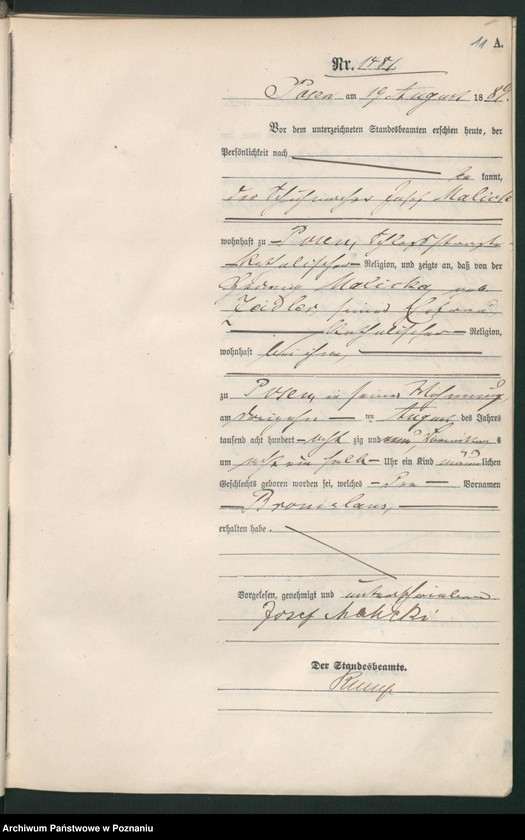 11 A.
Nr. 1781
Posen am 19 August 1889.
Vor dem unterzeichneten Standesbeamten erschien heute, der
Persönlichkeit nach
be kannt,
der Josef Malicki
wohnhaft zu Posen,
katholischer Religion, und zeigte an, daß von der
Hedwig Malicka, geb.
Zeidler, seiner Ehefrau,
katholischer Religion,
wohnhaft bei ihm,
zu Posen, in seiner Wohnung
am dreizehn ten August des Jahres
tausend acht hundert acht zig und neun, Vormittags
um acht ein halb Uhr ein Kind männlichen
Geschlechts geboren worden sei, welches den Vornamen
Bronislaus,
erhalten habe.
Vorgelesen, genehmigt und unterschrieben
Josef Malicki
Der Standesbeamte.
Archiwum Państwowe w Poznaniu